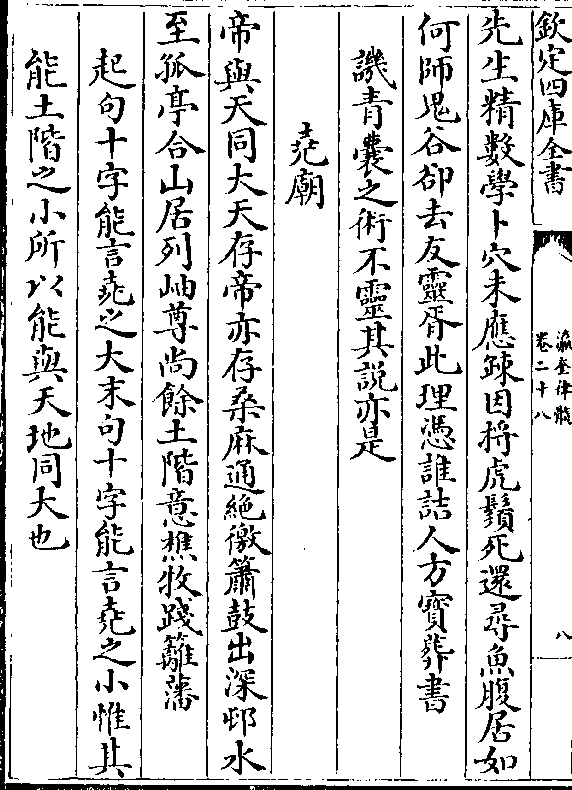 欽定四庫全書
瀛奎律髓
卷二十八
八
先生精數學卜穴未應踈因捋虎鬚死還尋魚腹居如
何師鬼谷卻去友靈胥此理憑誰詰人方寶葬書
譏青囊之術不靈其説亦是
堯廟
帝與天同大天存帝亦存桑麻通絶徼簫鼓出深邨水
至孤亭合山居列岫尊尚餘土階意樵牧踐籬藩
起句十字能言堯之大末句十字能言堯之小惟其
能土階之小所以能與天地同大也